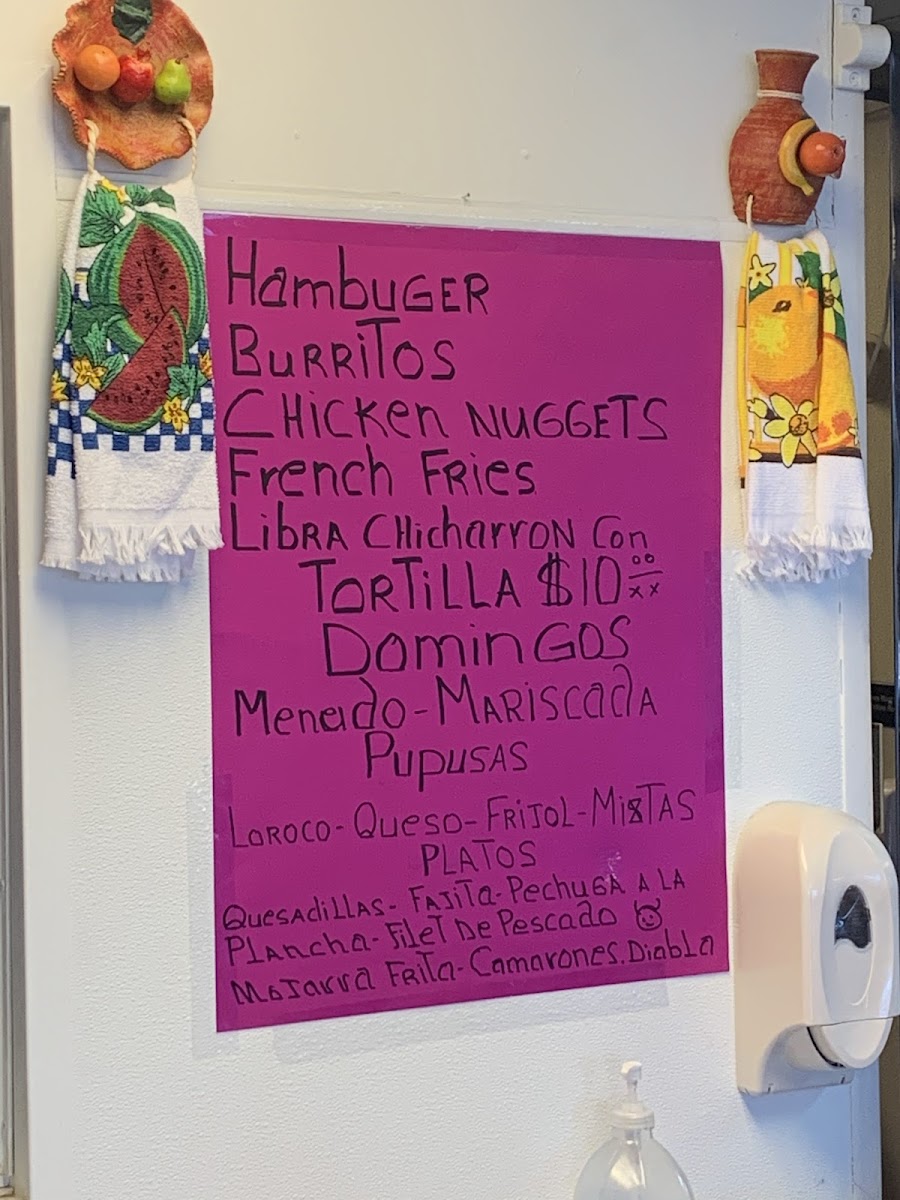 HambuGER
BURRiTos
CHicken NUGGETS
French FRies
LiBRA CHicharrON Con
TORTiLLA $10 00 xx
DominGOS
Menudo-MARiscadA
PupusAS
LOROCO-Queso-FRIJOL-MixTAS
PLATOS
QuesAdiLLAS- FAJiTA-PechuGA A LA
PLAncha-FileT De Pescado
MoJarra FRiTa-Camarones.DiabLa